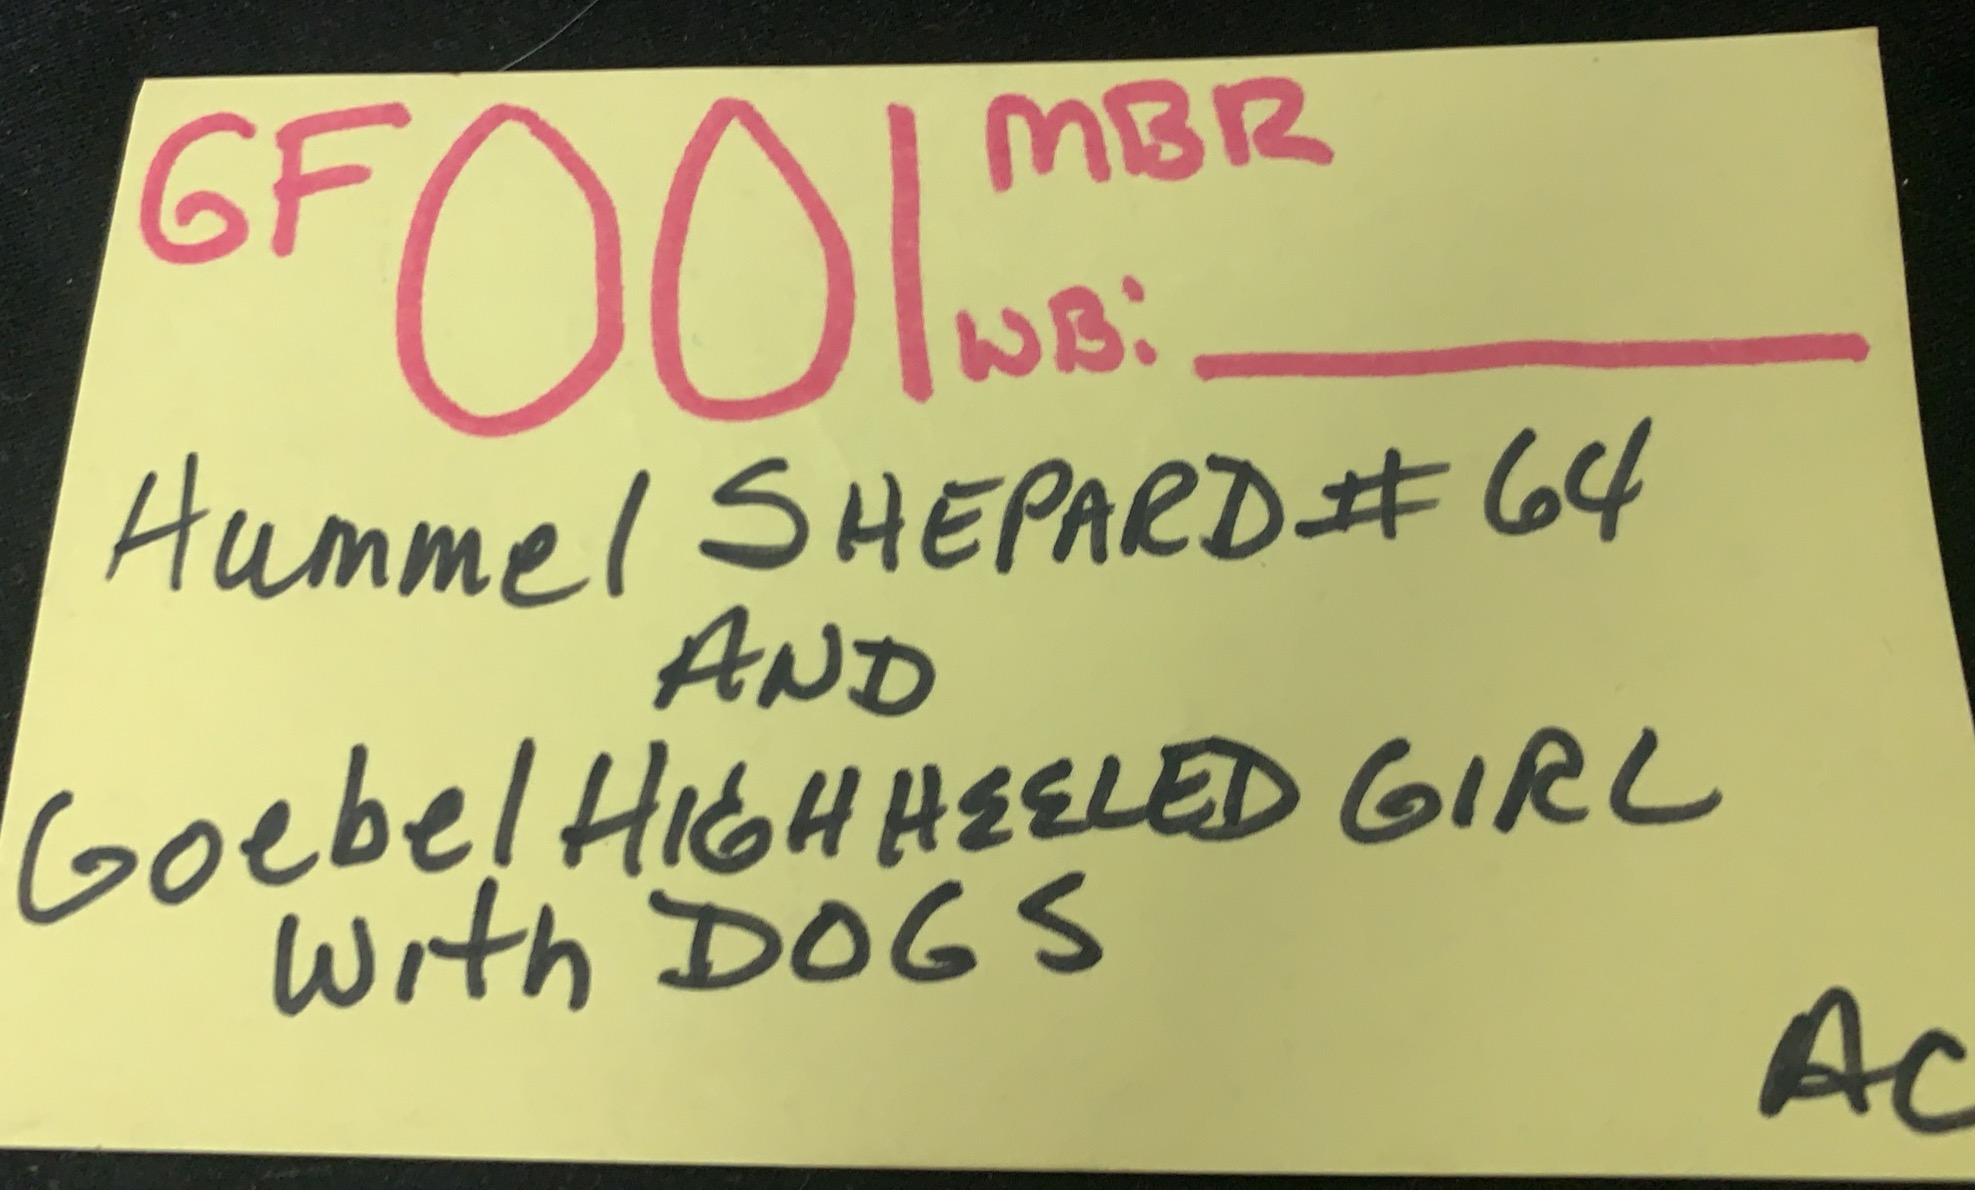 GF001 MBR
WB:
Hummel SHEPARD # 64
AND
Goebel HIGH HEELED GIRL
With DOGS
AC